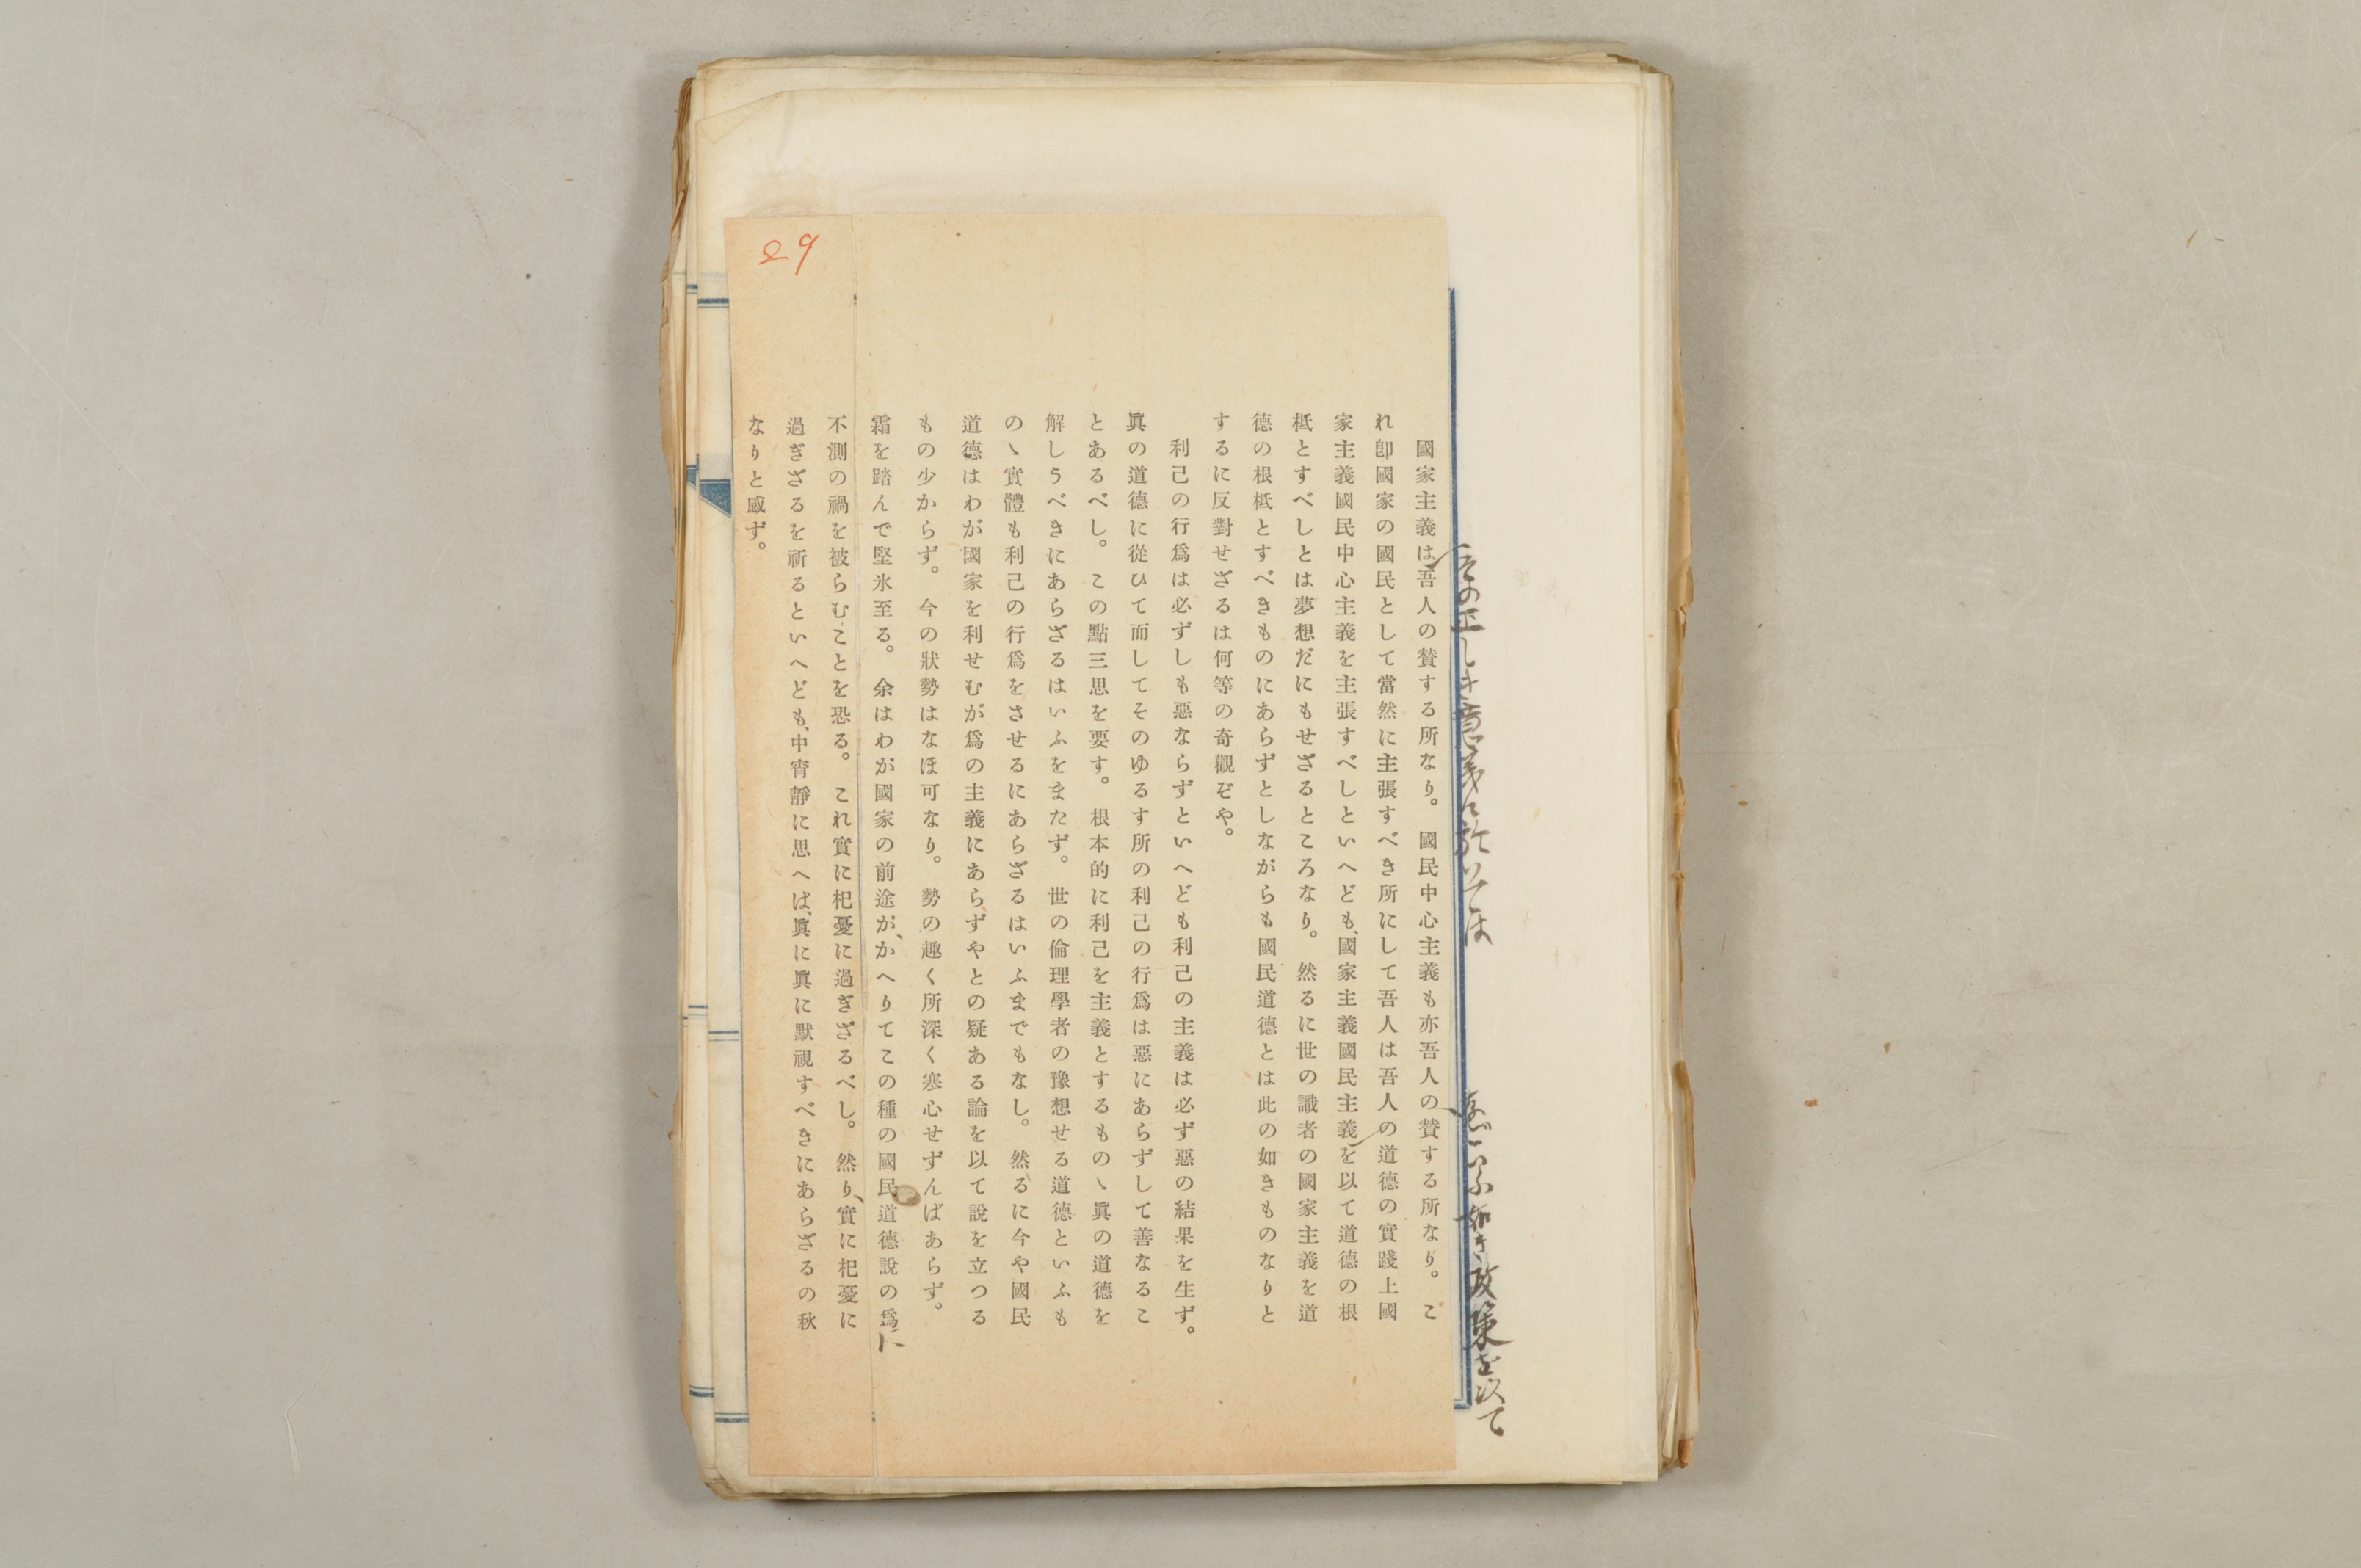 その正しき意義に於いては
いふ如き政策を以て
國家主義は吾人の賛する所なり。國民中心主義も亦吾人の賛する所なり。こ
れ卽國家の國民として當然に主張すべき所にして吾人は吾人の道德の實踐上國
家主義國民中心主義を主張すべしといへども、國家主義國民主義を以て道德の根
柢とすべしとは夢想だにもせざるところなり。然るに世の識者の國家主義を道
德の根柢とすべきものにあらずとしながらも國民道德とは此の如きものなりと
するに反對せざるは何等の奇觀ぞや。
利己の行爲は必ずしも惡ならずといへども利己の主義は必ず惡の結果を生ず。
眞の道德に從ひて而してそのゆるす所の利己の行爲は惡にあらずして善なるこ
とあるべし。この點三思を要す。根本的に利己を主義とするものヽ眞の道德を
解しうべきにあらざるはいふをまたず。世の倫理學者の豫想せる道德といふも
のヽ實體も利己の行爲をさせるにあらざるはいふまでもなし。然るに今や國民
道德はわが國家を利せむが爲の主義にあらずやとの疑ある論を以て說を立つる
もの少からず。今の狀勢はなほ可なり。勢の趣く所深く寒心せずんばあらず。
霜を踏んで堅氷至る。余はわが國家の前途が、かへりてこの種の國民道德說の爲に
不測の禍を被らむことを恐る。これ實に杞憂に過ぎざるべし。然り、實に杞憂に
過ぎざるを祈るといへども、中宵靜に思へば、眞に眞に默視すべきにあらざるの秋
なりと感ず。
29